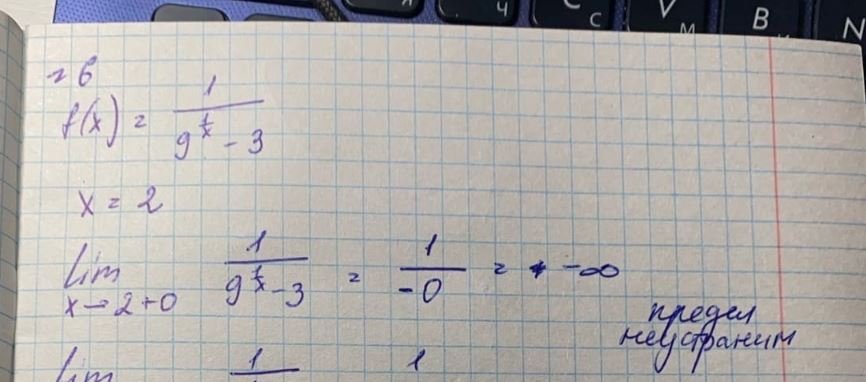 Ч С V М B N
№6
f(x) = 1/(9^(1/x) - 3)
x = 2
lim x→2+0 1/(9^(1/x) - 3) = 1/-0 = -∞
предел
неустраним
lim 1 1